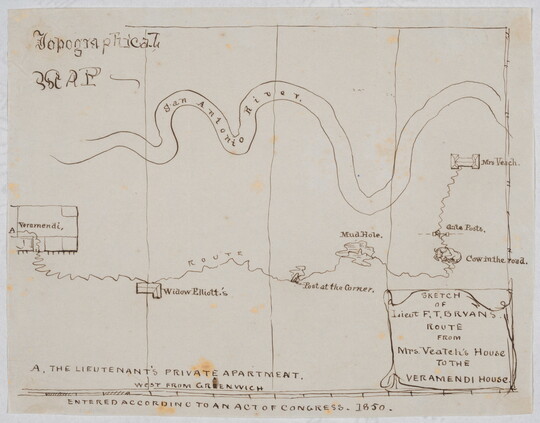 Topographical
MAP
San Antonio River.
Mrs Veach.
Veramendi.
A
Gate Posts.
Mud Hole.
Cow in the road.
ROUTE
Widow Elliott's
Post at the Corner.
SKETCH
OF
Lieut F. T. BRYAN'S
ROUTE
FROM
Mrs Veatch's House
TO THE
VERAMENDI HOUSE
A, THE LIEUTENANT'S PRIVATE APARTMENT.
WEST FROM GREENWICH
ENTERED ACCORDING TO AN ACT OF CONGRESS. 1850.